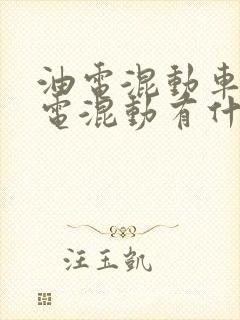 油電混動車
電混動有什
汪玉凱